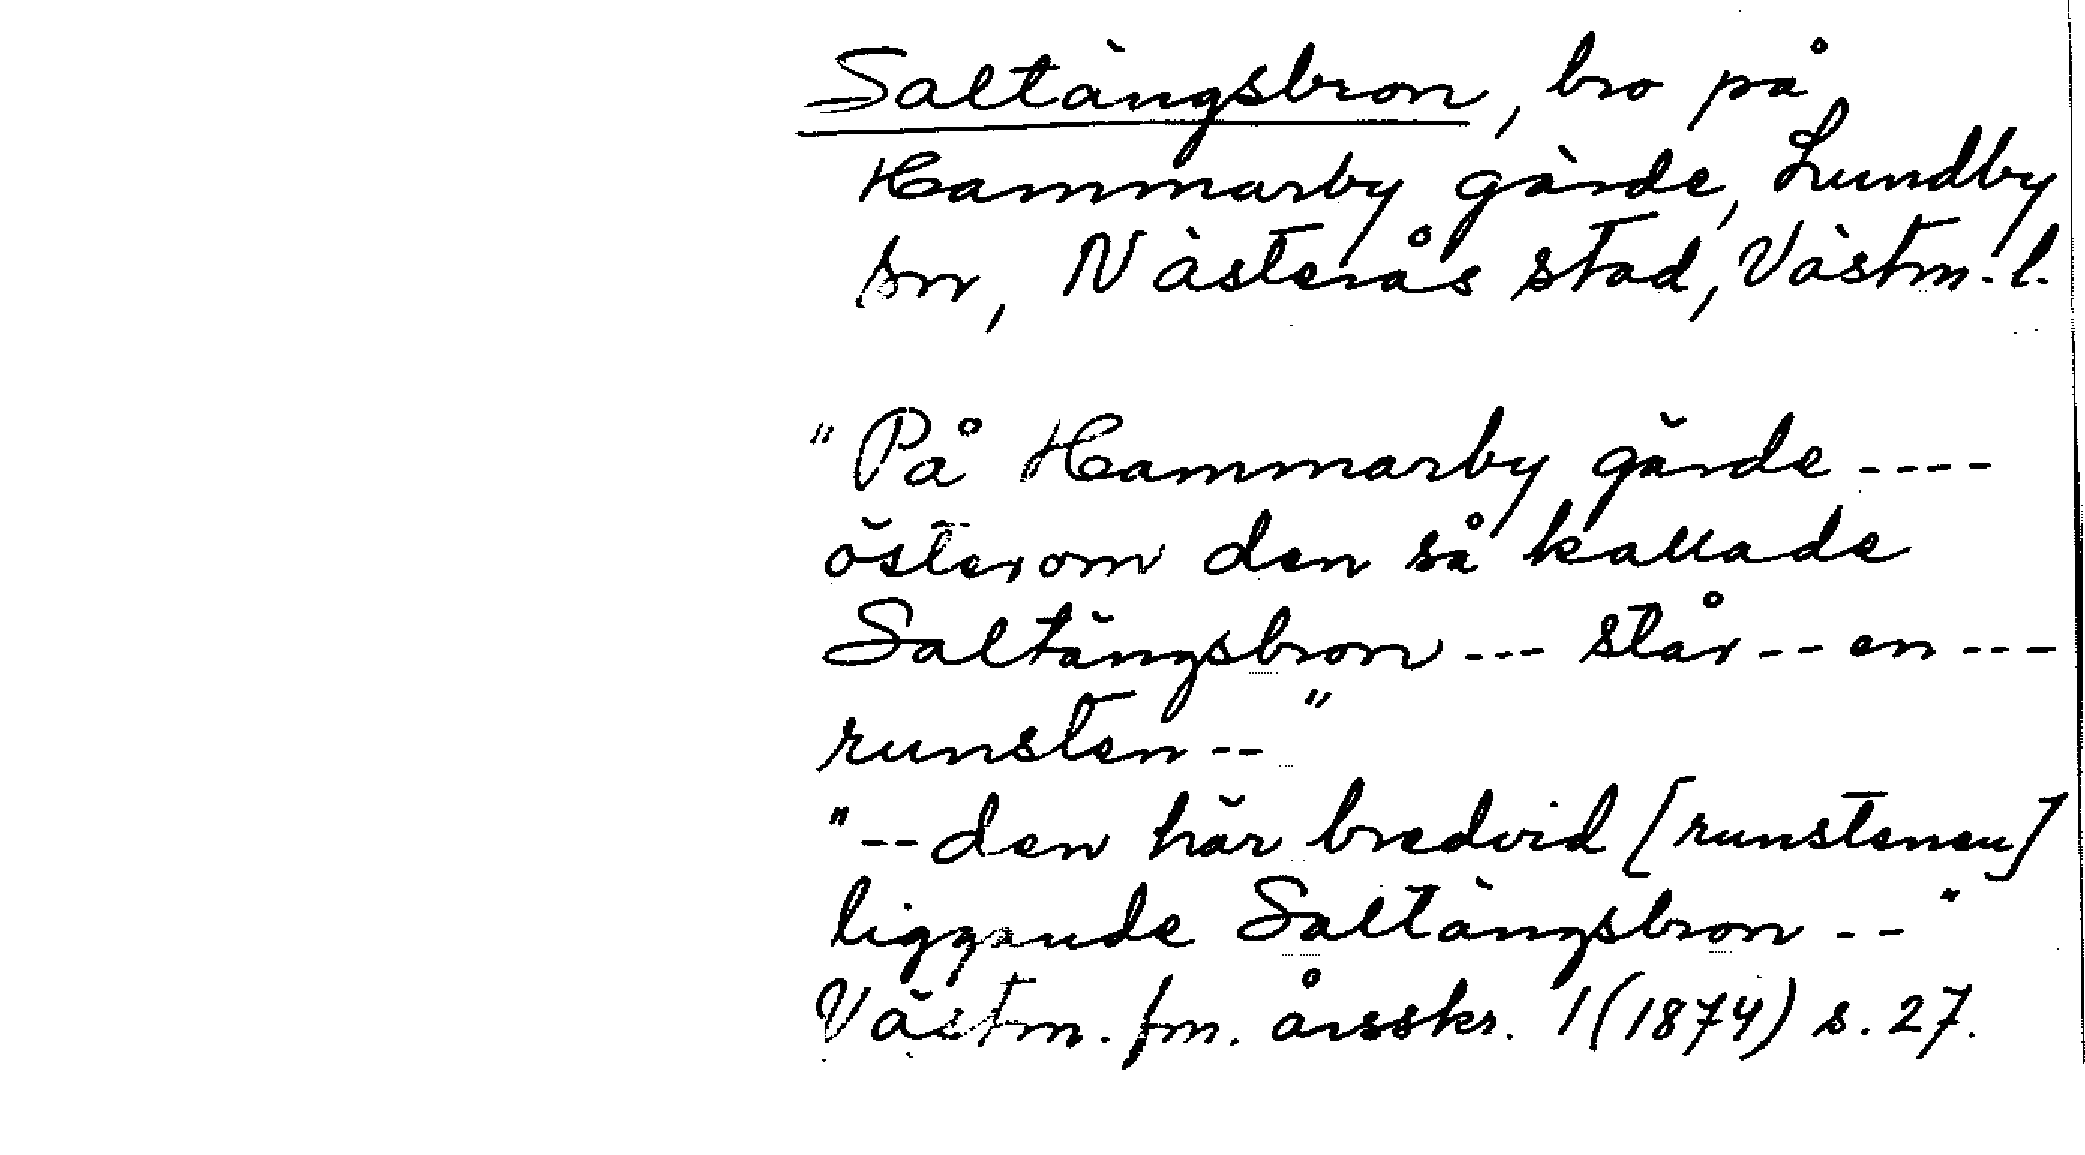 Saltängsbron, bro på
Hammarby gärde, Lundby
sn, Västerås stad, Västm. l.
"På Hammarby gärde ----
österom den så kallade
Saltängsbron --- står -- en ---
runsten -- "
" -- den här bredvid [runstenen]
liggande Saltängsbron -- "
Västm. fm. årsskr. 1 (1874) s. 27.